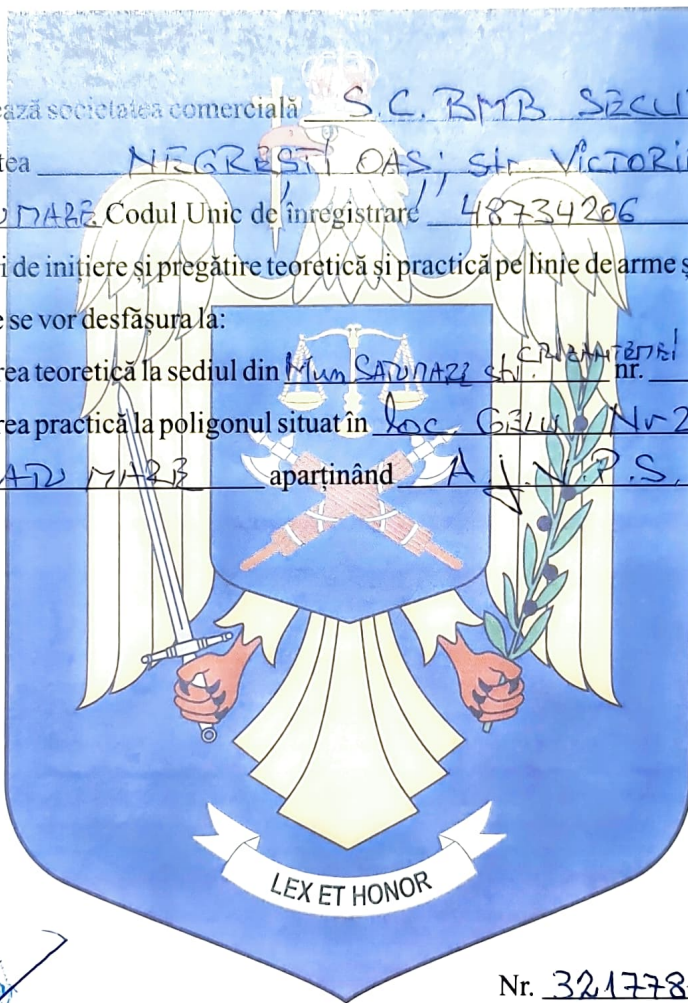 ează societatea comercială S.C. BMB SECU
tea NEGREȘTI OAȘ, str. VICTORI
U MARE Codul Unic de înregistrare 48734206
i de inițiere și pregătire teoretică și practică pe linie de arme ș
e se vor desfășura la:
rea teoretică la sediul din Mun SATU MARE str. CRIZANTEMEI nr.
rea practică la poligonul situat în loc GELU Nr 2
ATU MARE aparținând A.J.V.P.S.
LEX ET HONOR
Nr. 321778